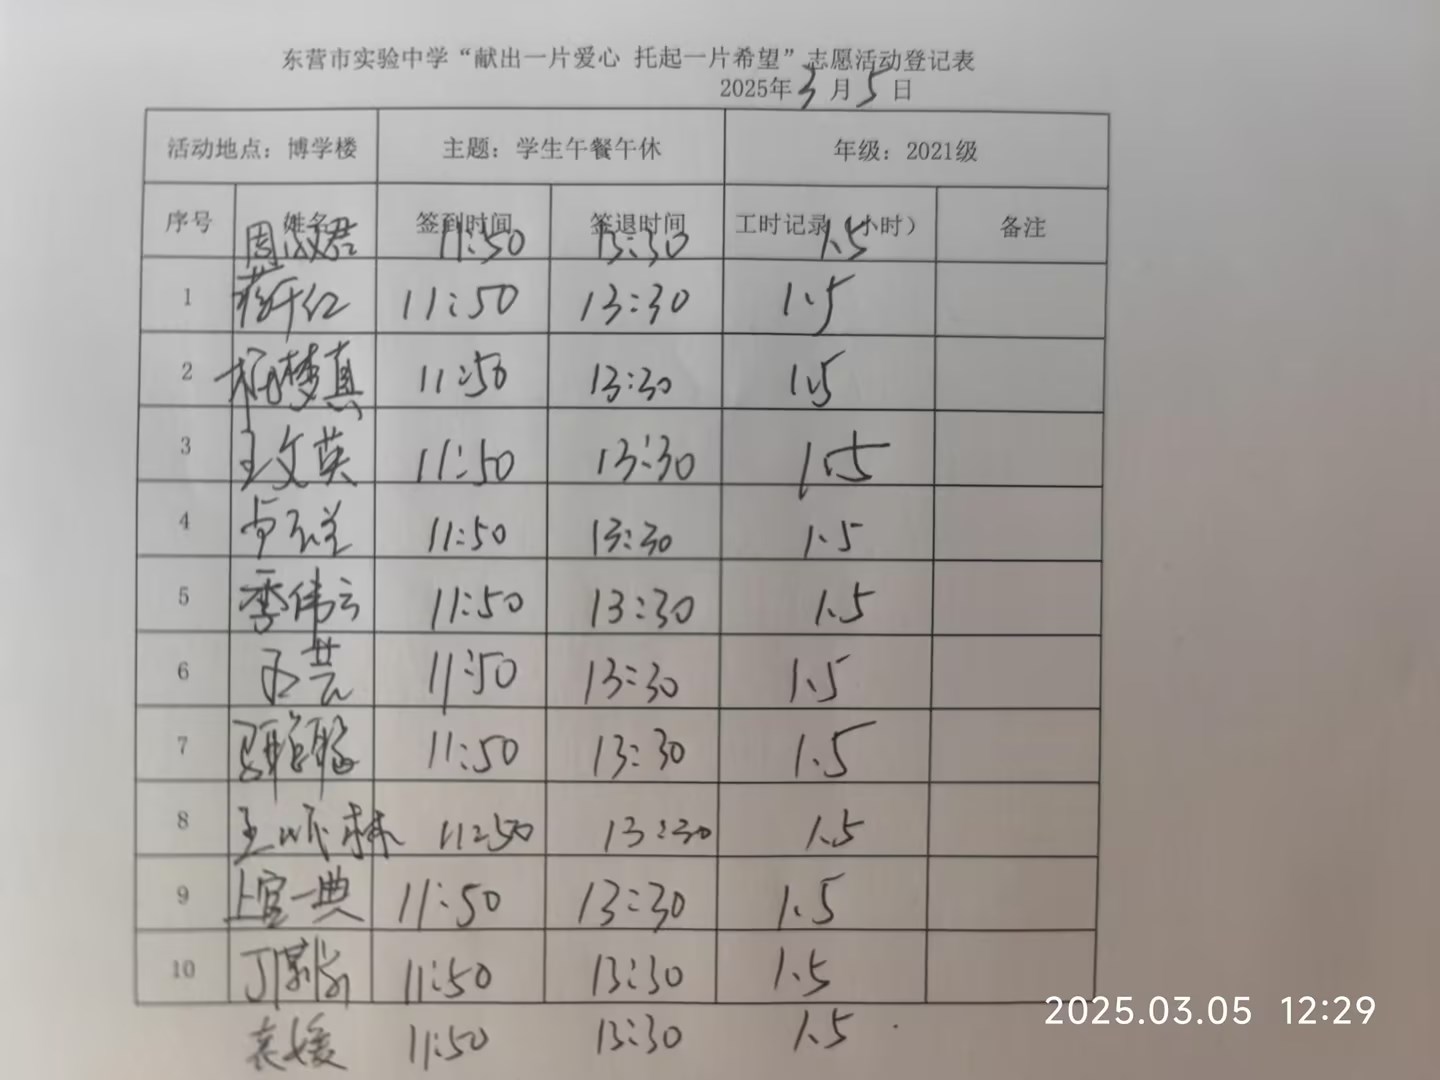 东营市实验中学“献出一片爱心 托起一片希望”志愿活动登记表
2025年3月5日
活动地点：博学楼 主题：学生午餐午休 年级：2021级
序号 姓名 签到时间 签退时间 工时记录（小时） 备注
周 君 11:50 13:30 1.5
1 蒋千红 11:50 13:30 1.5
2 杨梦真 11:50 13:30 1.5
3 王文英 11:50 13:30 1.5
4 11:50 13:30 1.5
5 季伟云 11:50 13:30 1.5
6 芸 11:50 13:30 1.5
7 11:50 13:30 1.5
8 王 林 11:50 13:30 1.5
9 上官一典 11:50 13:30 1.5
10 丁 11:50 13:30 1.5
袁媛 11:50 13:30 1.5
2025.03.05 12:29